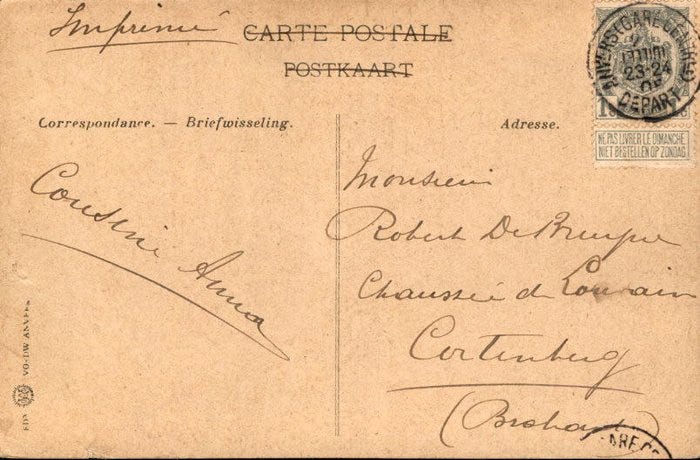 Imprimé
CARTE POSTALE
POSTKAART
ANVERS (GARE CENTRALE)
23-24
DEPART
NE PAS LIVRER LE DIMANCHE
NIET BESTELLEN OP ZONDAG
Correspondance. — Briefwisseling.
Adresse.
Cousine Anna
Monsieur
Robert De Bruyne
Chaussée de Louvain
Cortenberg
(Brabant)
VO-DW ANVERS